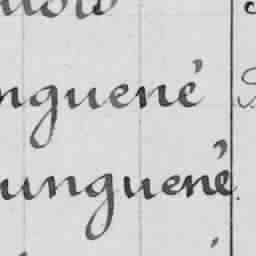 nguené
unguené